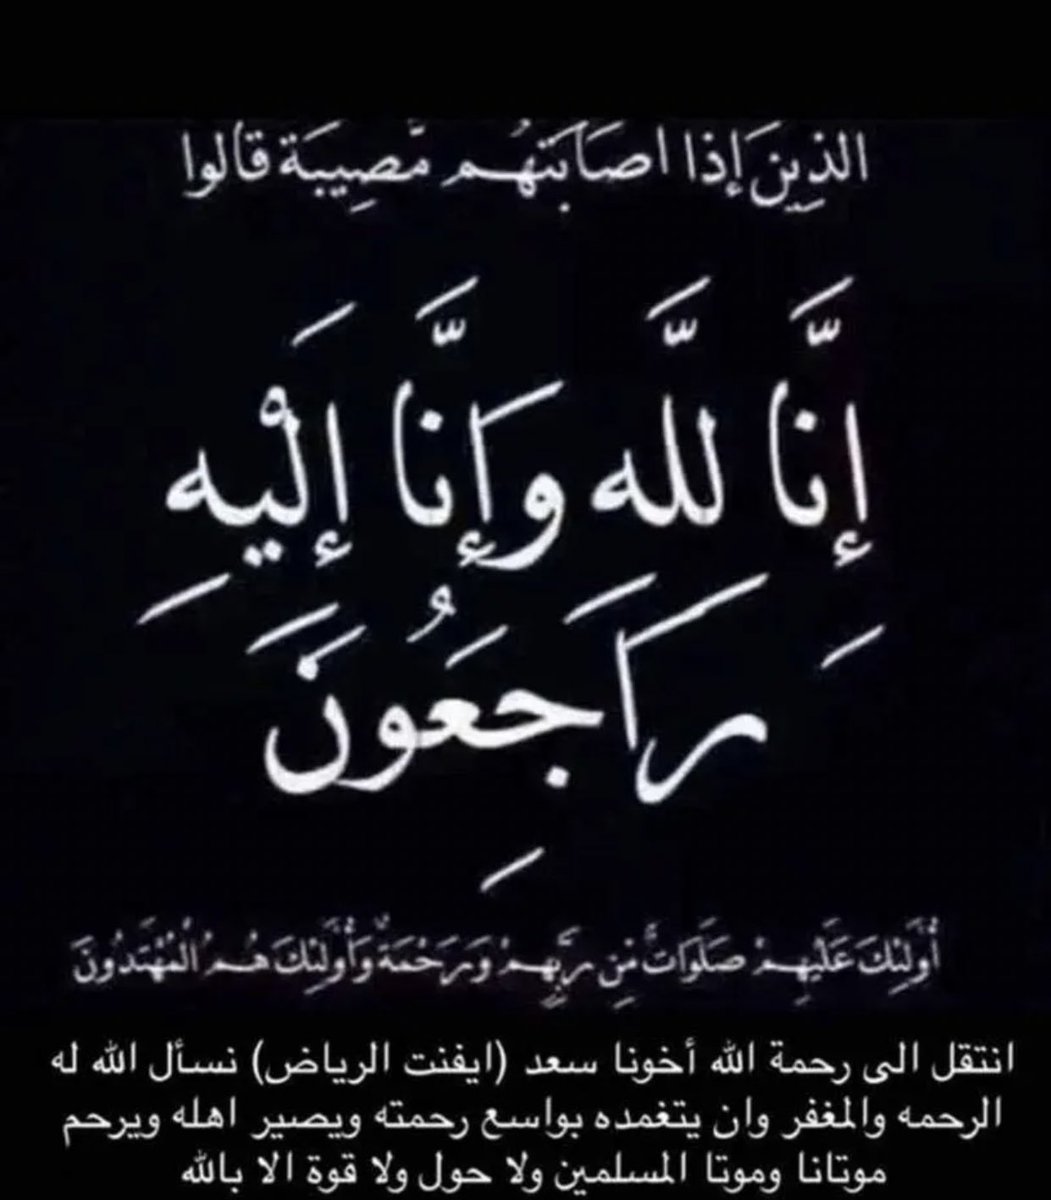 الَّذِينَ إِذَا اصَابَتْهُم مُّصِيبَة قَالُوا
إِنَّا للَّه وَإِنَّا إِلَيْهِ
رَاجِعُونَ
أُولَئِكَ عَلَيْهِمْ صَلَوَاتٌ مِّن رَّبِّهِمْ وَرَحْمَةٌ وَأُولَئِكَ هُمُ الْمُهْتَدُونَ
انتقل الى رحمة الله أخونا سعد (ايفنت الرياض) نسأل الله له
الرحمه والمغفر وان يتغمده بواسع رحمته ويصير اهله ويرحم
موتانا وموتا المسلمين ولا حول ولا قوة الا بالله